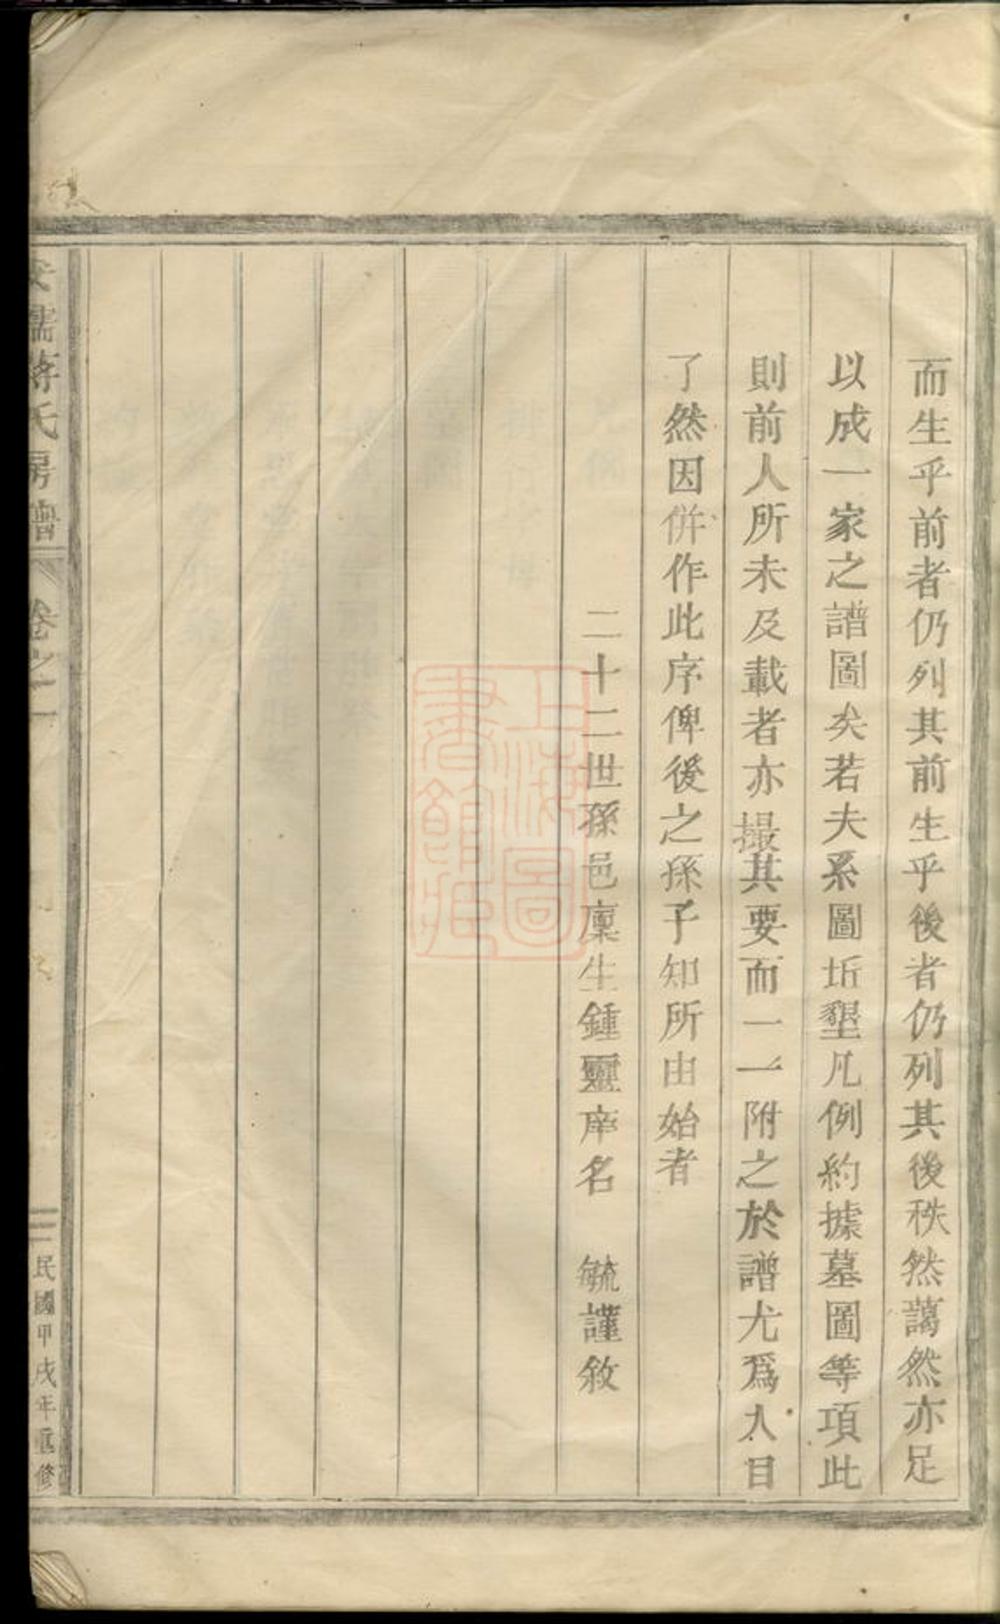 而生乎前者仍列其前生乎後者仍列其後秩然藹然亦足
以成一家之譜圖矣若夫系圖坵墾凡例約據墓圖等項此
則前人所未及載者亦撮其要而一一附之於譜尤爲人目
了然因併作此序俾後之孫子知所由始者
二十二世孫邑廩生鍾靈庠名 毓謹敘
儒蔣氏房譜 卷之一
民國甲戌年重修
上海圖書館藏